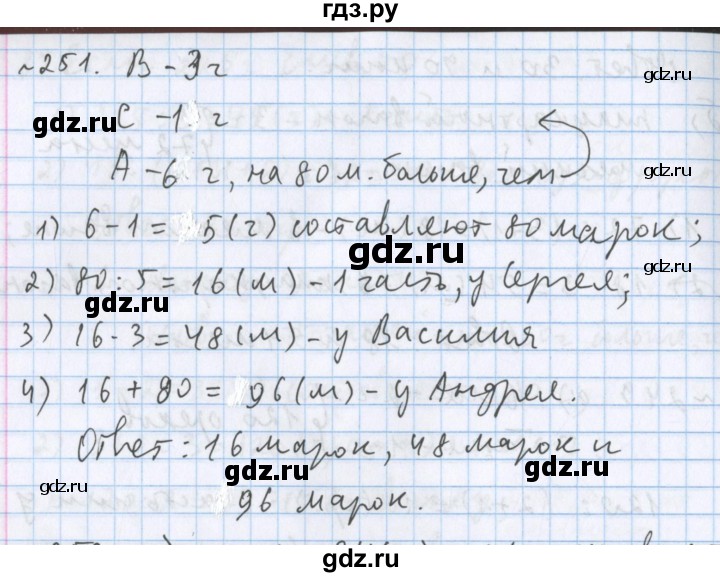 гдз.ру
№251. В – 3 г
С – 1 г
А – 6 г, на 80 м. больше, чем
1) 6 - 1 = 5 (г) составляют 80 марок;
2) 80 : 5 = 16 (м) – 1 часть, у Сергея;
3) 16 · 3 = 48 (м) – у Василия
4) 16 + 80 = 96 (м) – у Андрея.
Ответ: 16 марок, 48 марок и
96 марок.
gdz.ru
gdz.ru
gdz.ru
gdz.ru
gdz.ru
gdz.ru
gdz.ru
gdz.ru
gdz.ru
gdz.ru
gdz.ru
gdz.ru
gdz.ru